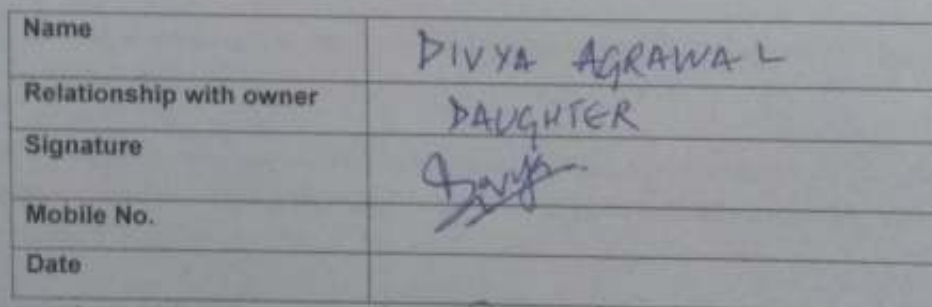 Name DIVYA AGRAWAL
Relationship with owner DAUGHTER
Signature Divya
Mobile No.
Date